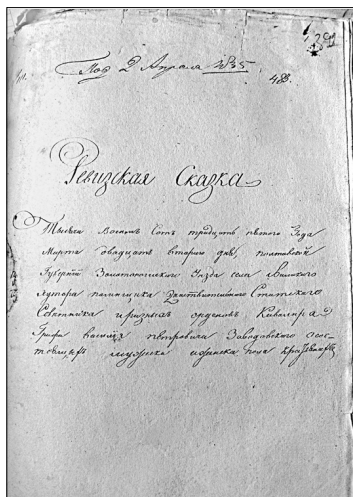 Пол. 2 Апреля 1835
488.
Ревизская Сказка
Тысяча Восемь Сотъ тридцать пятого Года
Марта двадцать втораго дня, полтавской
Губерніи Золотоношского уѣзда села Великого
хутора помещика Действительного Статского
Советника и разныхъ орденовъ Кавалера
Графа Василія петровича Заводовского о состо-
мужеска и женска пола